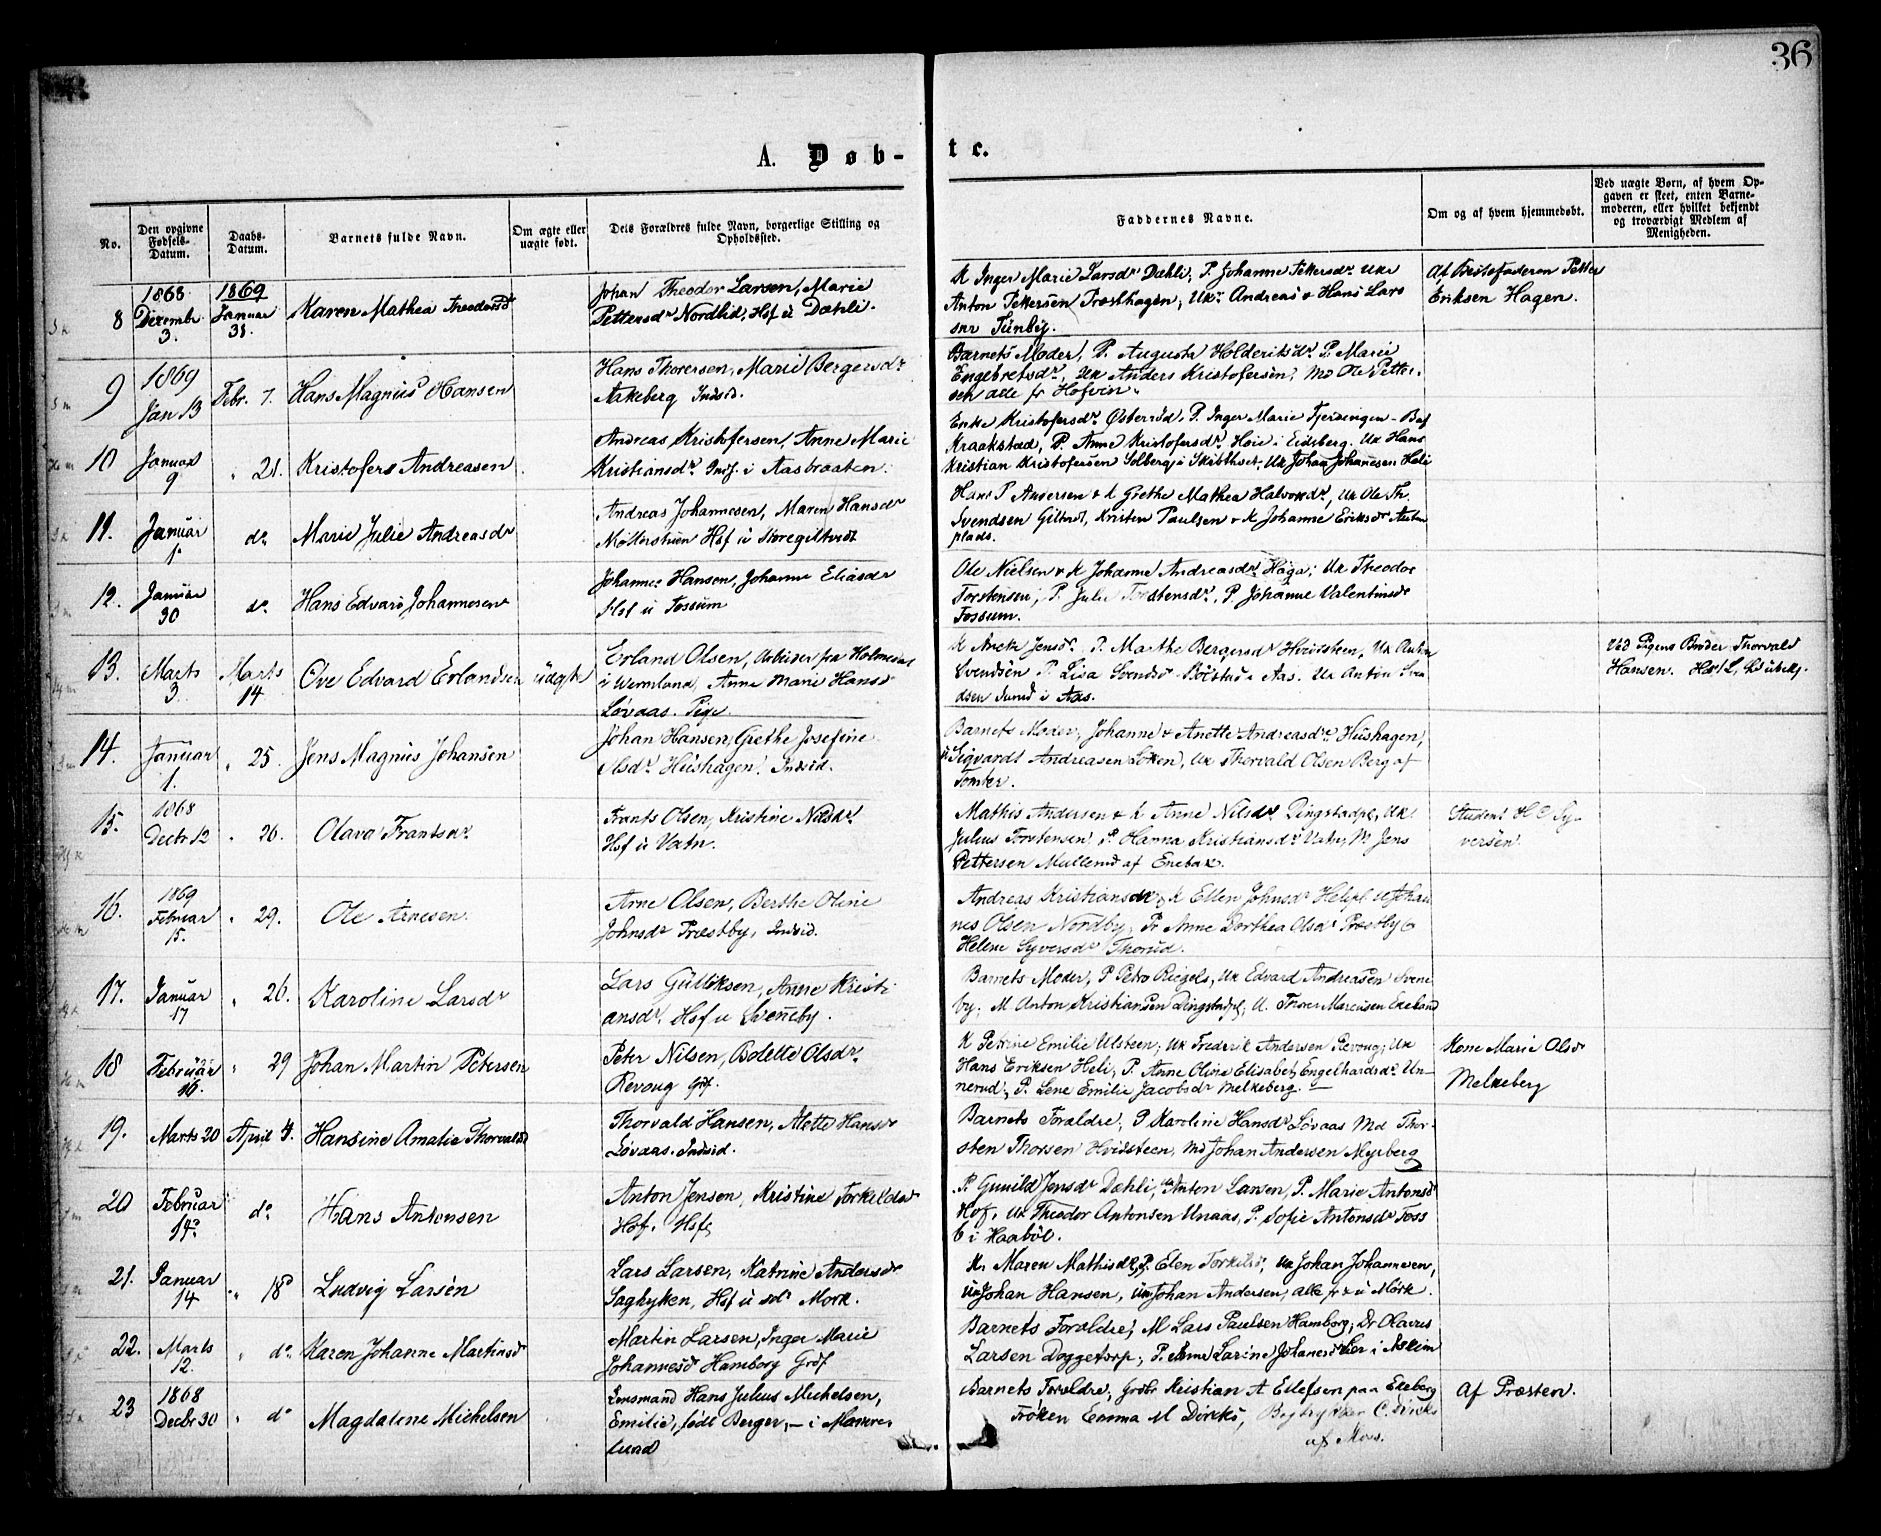 36
A. Døb-te.
No.
Den opgivne Fødsels-Datum.
Daabs-Datum.
Barnets fulde Navn.
Om ægte eller uægte født.
Dets Forældres fulde Navn, borgerlige Stilling og Opholdssted.
Faddernes Navne.
Om og af hvem hjemmedøbt.
Ved uægte Børn, af hvem Op-
gaven er skeet, enten Barne-
moderen, eller hvilket bekjendt
og troværdigt Medlem af
Menigheden.
8 1868 Dezembr. 3. 1869 Januar 31. Karen Mathea Theodorsdr
Johan Theodor Larsen, Marie
Pettersdr Nordlid, Hsf u Dæhli.
K Inger Marie Larsdr Dæhli, P. Johanne Pettersdr. Uk
Anton Pettersen Præsthagen, Uk Andreas & Hans Lars
snr Tünby.
Af Bestefaderen Petter
Eriksen Hagen.
9 1869 Jan 13 Febr. 7. Hans Magnus Hansen
Hans Thoresen, Marie Bergersdr
Aakeberg Indsid.
Barnets Moder, P. Augusta Holderiksdr. P. Marie
Engebretsdr, Uk Anders Kristofersen, Md Ole Petter-
sen alle fr Hofvin
10 Januar 9 " 21. Kristofers Andreasen
Andreas Kristofersen, Anne Marie
Kristiansdr. Inds. i Aasbraaten.
Enke Kristofersdr. Østerud, P. Inger Marie
Kraakstad, P. Anne Kristofersdr. Høie i Eidsberg. Uk Hans
Kristian Kristofersen Solberg i Skibthvet. Uk Johan Johannesen Heli
11. Januar 1. do Marie Julie Andreasdr
Andreas Johannesen, Maren Hansdr
Hsf u Storegiltvedt
Hans P Andersen & K Grethe Mathea Halvorsdr, Uk Ole Th.
Svendsen Giltvedt, Kristen Paulsen & K Johanne Eriksdr
plads.
12. Januar 30 do Hans Edvard Johannesen
Johannes Hansen, Johanne Eliasdr
Hsf u Fossum
Ole Nielsen & K Johanne Andreasdr Haga; Uk Theodor
Torstensen, P. Julie Torstensdr, P. Johanne Valentinsdr
Fossum.
13. Marts 3 Marts 14 Ove Edvard Erlandsen uægte
Erland Olsen, Arbeider fra Holmedal
i Wermland, Anne Marie Hansdr
Løvaas. Pige
K Jensdr. P. Marthe Bergersdr Hvidsteen, Uk Anton
Svendsen P. Lisa Svendsdr Bølstad i Aas. Uk Anton Sven
dsen Sund i Aas.
Ved Pigens Broder Thorvald
Hansen.
14. Januar 1. " 25. Jens Magnus Johansen
Johan Hansen, Grethe Josefine
Olsdr. Hushagen. Indsid.
Barnets Moder, Johanne & Anette Andreasdr Hushagen,
Sigvardt Andreasen Løken, Uk Thorvald Olsen Berg af
Tomter.
15. 1868 Decbr 12 " 26. Olava Frantsdr
Frants Olsen, Kristine Nilsdr.
Hsf u Vatn.
Mathis Andersen & K Anne Nilsdr. Dingstadpl, Uk
Julius Torstensen, P Hanna Kristiansdr Vatn, M Jens
Pettersen Mullerud af Enebak.
Student H C Sy-
versen.
16. 1869 Februar 15. " 29. Ole Arnesen.
Arne Olsen, Berthe Oline
Johnsdr Præstby, Indsid.
Andreas Kristiansen & K Ellen Johnsdr Uk Johan
nes Olsen Nordby, P. Anne Dorthea Olsdr Præstby &
Helene Syversdr Thorud.
17. Januar 17 " 26. Karoline Larsdr
Lars Gulliksen, Anne Kristi
ansdr. Hsf u Svenneby.
Barnets Moder, P Petra Riegels, Uk Edvard Andreasen Svene
by. M Anton Kristiansen Dingstadpl, U. Thorer Marensen Ekelund
18 Februar 16. " 29 Johan Martin Petersen
Peter Nilsen, Bolette Olsdr.
Revoug Gdf.
K Petrine Emilie Ulsteen, Uk Frederik Andersen Revoug, Uk
Hans Eriksen Heli, P. Anne Olive Elisabet Engelhardsdr Un-
nerud, P. Lene Emilie Jacobsdr Melkeberg.
Kone Marie Olsdr
Melkeberg
19. Marts 20 April 4. Hansine Amalie Thorvaldsdr
Thorvald Hansen, Alette Hansdr
Løvaas. Indsid.
Barnets Forældre, P Karoline Hansdr Løvaas Md Thor-
sten Thorsen Hvidsteen, Md Johan Andersen Myrberg
20 Februar 14. do Hans Antonsen
Anton Jensen, Kristine Torkildsdr
Hof. Hsf
P. Gunild Jensdr Dæhli, Uk Anton Larsen, P. Marie Antonsdr
Hof, Uk Theodor Antonsen Unaas, P. Sofie Antonsdr Foss
i Haabøl.
21. Januar 14 " 18 Ludvig Larsen
Lars Larsen, Katrine Andersdr
Saghyken, Hsf u sdr Mørk.
K. Maren Mathisdr, P. Elen Torkilsdr, Uk Johan Johannesen,
Um Johan Hansen, Um Johan Andersen, alle fr & u Mørk.
22. Marts 12. " do Karen Johanne Martinsdr
Martin Larsen, Inger Marie
Johannesdr Hamborg Gdf
Barnets Forældre, M Lars Paulsen Hamborg, Dr Olavus
Larsen Doggetorp, P. Anne Larine Johansdr i Askim
23 1868 Decbr 30 " do Magdalene Michelsen
Lensmand Hans Julius Michelsen,
Emilie, født Berger, – i Mamre-
lund
Barnets Forældre, Grdbr Kristian A Ellefsen paa Ekeberg
Frøken Emma M Dircks, C. Dircks
af Mos.
Af Præsten.